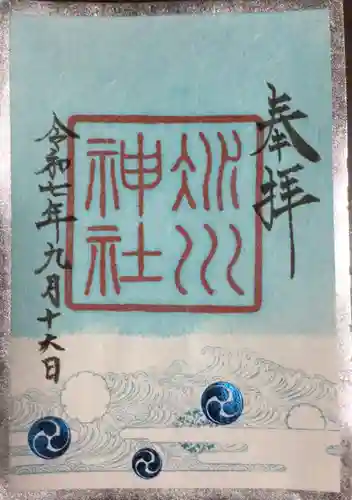 奉拝
氷川
神社
令和七年九月十六日